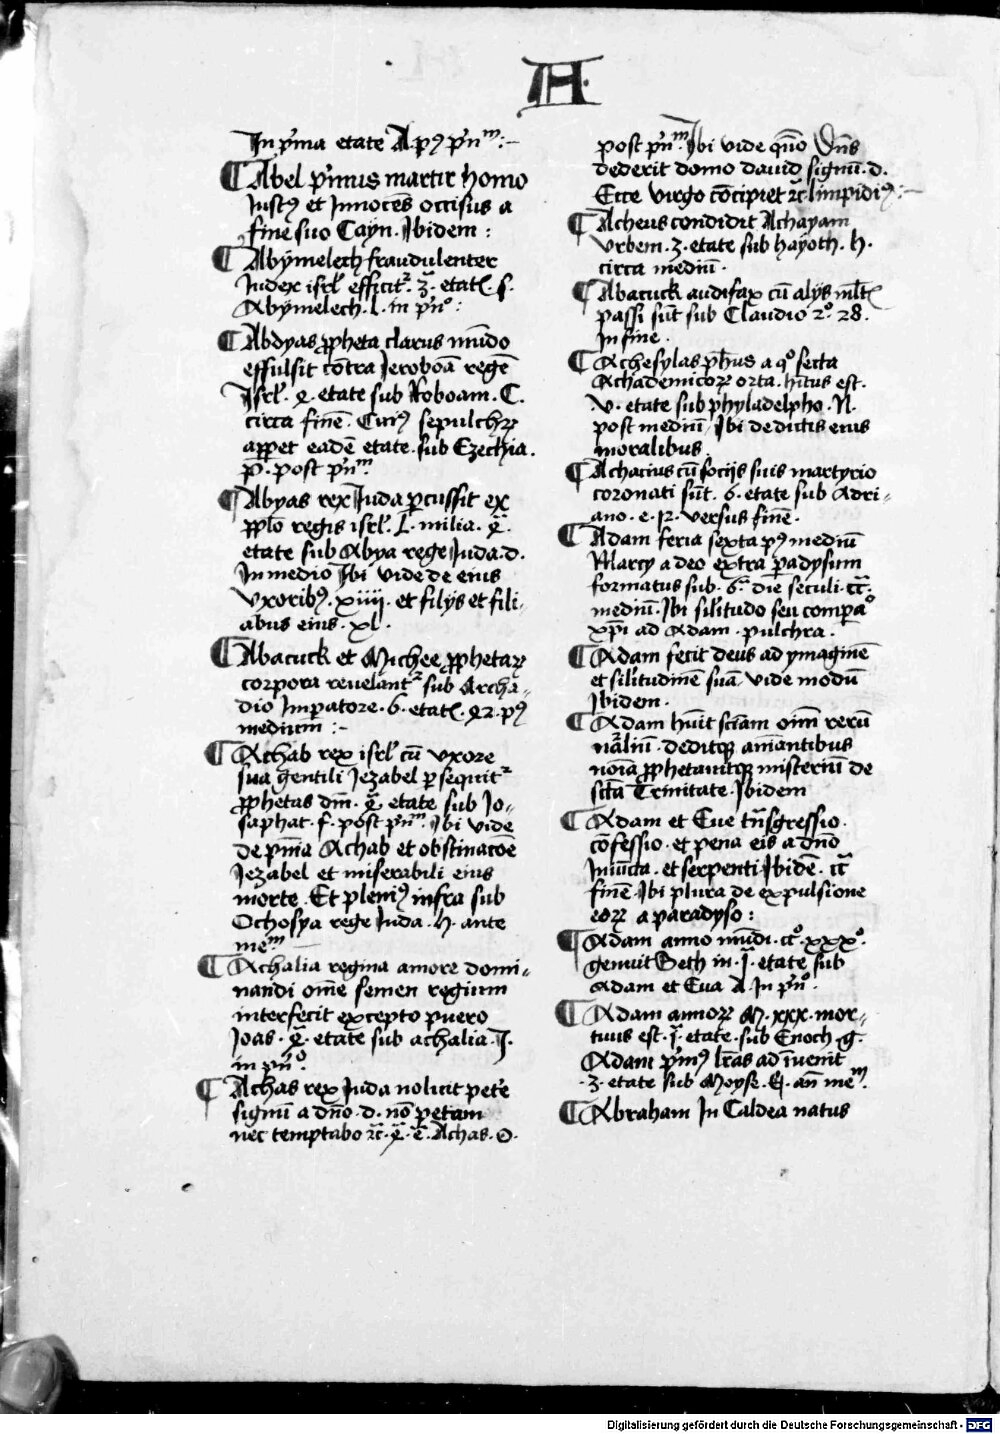 A.
In p'ma etate A. pꝰ p'nᵐ :-
¶ Abel p'mus martir homo
Iustꝰ et Innocēs occisus a
f̄rē suo Cayn. Ibidem :
¶ Abÿmelech fraudulenter
Iudex isrl' efficit᷑. 3. etate. s.
Abÿmelech. l. in p'nº :
¶ Abdyas ꝓpheta clarus mūdo
effulsit cōtra Ieroboā regē
Isrl'. 4. etate sub Roboam. C.
circa finē. Cuiꝰ sepulchꝝ
apꝑet eadē etate. sub Ezechia.
p. post p'nᵐ
¶ Abyas rex Iuda ꝑcussit ex
ppl'o regis isrl'. L. milia. 4.
etate sub Abya rege Iuda. d.
In medio Ibi vide de eius
vxoribꝰ. xiiij. et filÿs et fili-
abus eius. xl.
¶ Abacuck et Michee ꝓphetaꝝ
corpora reuelant᷑ sub Archa-
dio Imꝑatore. 6. etate. 42. pꝰ
medium :-
¶ Achab rex isrl' cū vxore
sua gentili Iezabel ꝑsequit᷑
ꝓphetas dm̄. 4. etate sub Io-
saphat. f. post p'nᵐ. Ibi vide
de pn̄ia Achab et obstinacōe
Iezabel et miserabili eius
morte. Et pleniꝰ infra sub
Ochosya rege Iuda. h. ante
meᵐ
¶ Achalia regina amore domi-
nandi om̄e semen regium
interfecit excepto puero
Ioas. 4. etate sub achalia. I.
in p'nº
¶ Achas rex Iuda noluit pet'e
signū a dn̄o. d. nō petam
nec temptabo ⁊c̄. 4. ē. Achas. d.
post p'nᵐ. Ibi vide quō Dn̄s
dederit domo dauid signū. d.
Ecce virgo cōcipiet ⁊c̄. limpidiꝰ :-
¶ Acheus condidit Achayam
vrbem. 3. etate sub hayoth. h.
circa mediū.
¶ Abacuck audifax cū alÿs ml't
passi sūt sub Claudio 2º. 28.
In fine.
¶ Achesylas ph'us a qº secta
Achademicoꝝ orta. hitus est.
.v. etate sub phyladelpho. N.
post mediū Ibi de dictis eius
moralibus
¶ Achacius cū socijs suis martyrio
coronati sūt. 6. etate sub Adri-
ano. e. 12. versus finē.
¶ Adam feria sexta pꝰ mediū
Marcy a deo extra ꝑadysum
formatus sub. 6. die seculi. a.
mediū. Ibi sil'itudo seu compaº
xp̄i ad Adam. pulchra.
¶ Adam fecit deus ad ymaginē
et sil'itudinē suā. vide modū
Ibidem.
¶ Adam h'uit sciam om̄ rerū
nāliū. deditqꝫ aīantibus
noīa ꝓphetauitqꝫ misteriū de
sc̄ta Trinitate. Ibidem
¶ Adam et Eue tn̄sgressio.
cōfessio. et pena eis a dn̄o
Iniūcta. et serpenti Ibidē. a
finē. Ibi plura de expulsione
eoꝝ a paradyso :
¶ Adam anno mūdi. cº. xxxº.
genuit Seth in. I. etate sub
Adam et Eua A. In p'nº.
¶ Adam annoꝝ M. xxx. mor-
tuus est. I. etate. sub Enoch. g.
Adam p'mꝰ lr̄as ad īuenit
.3. etate sub Moyse. E. an̄ meᵐ.
¶ Abraham In Caldea natus
Digitalisierung gefördert durch die Deutsche Forschungsgemeinschaft - DFG